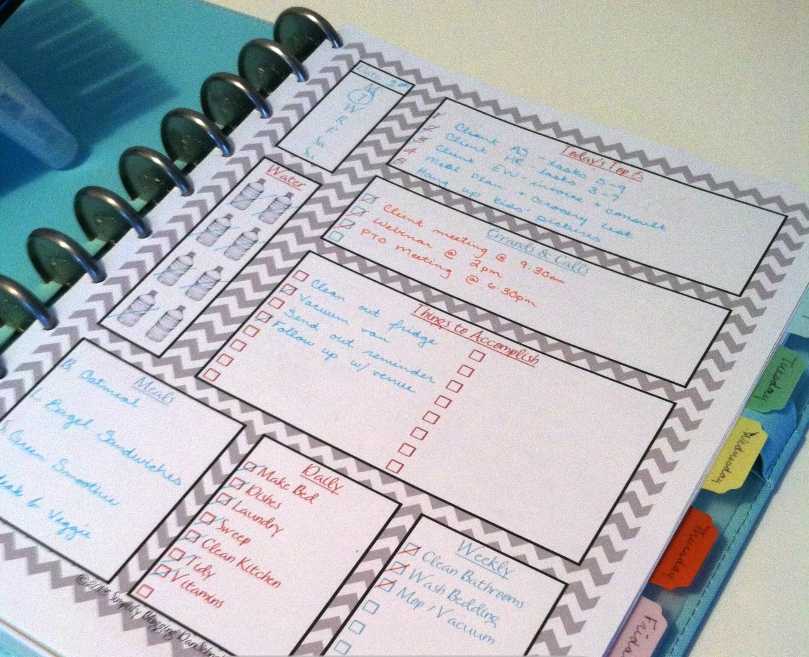 M
T
W
R
F
S
S
Today's Top 5
1
Client AJ - tasks 5-9
2
Client HK - tasks 3-7
3
Client EW - invoice + consult
4
Meal Plan + Grocery List
5
Hang up kids' pictures
Water
Errands & Calls
Client meeting @ 9:30am
Webinar @ 2pm
PTO Meeting @ 6:30pm
Things to Accomplish
Clean out fridge
Vacuum van
Send out reminder
Follow up w/ venue
Meals
B. Oatmeal
L. Bagel Sandwiches
S. Green Smoothie
& Veggie
Daily
Make Bed
Dishes
Laundry
Sweep
Clean Kitchen
Tidy
Vitamins
Weekly
Clean Bathrooms
Wash Bedding
Mop / Vacuum
Tuesday
Wednesday
Thursday
Friday
Blogging